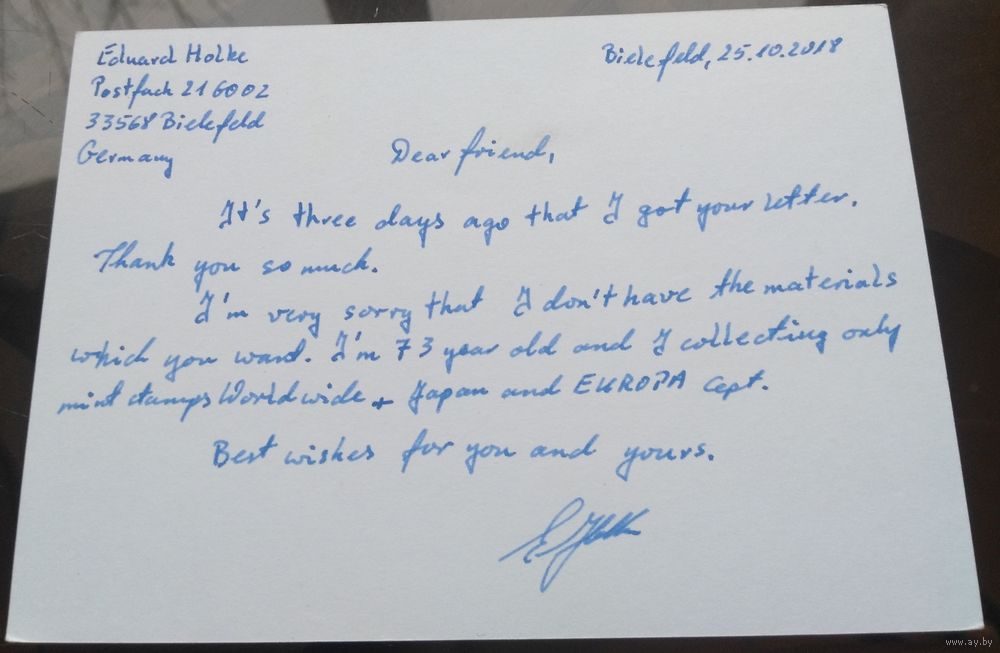 Eduard Holke
Bielefeld, 25.10.2018
Postfach 21 6002
33568 Bielefeld
Germany
Dear friend,
It's three days ago that I got your letter.
Thank you so much.
I'm very sorry that I don't have the materials
which you want. I'm 73 year old and I collecting only
mint stamps Worldwide + Japan and EUROPA Cept.
Best wishes for you and yours.
E Holke
www.ay.by